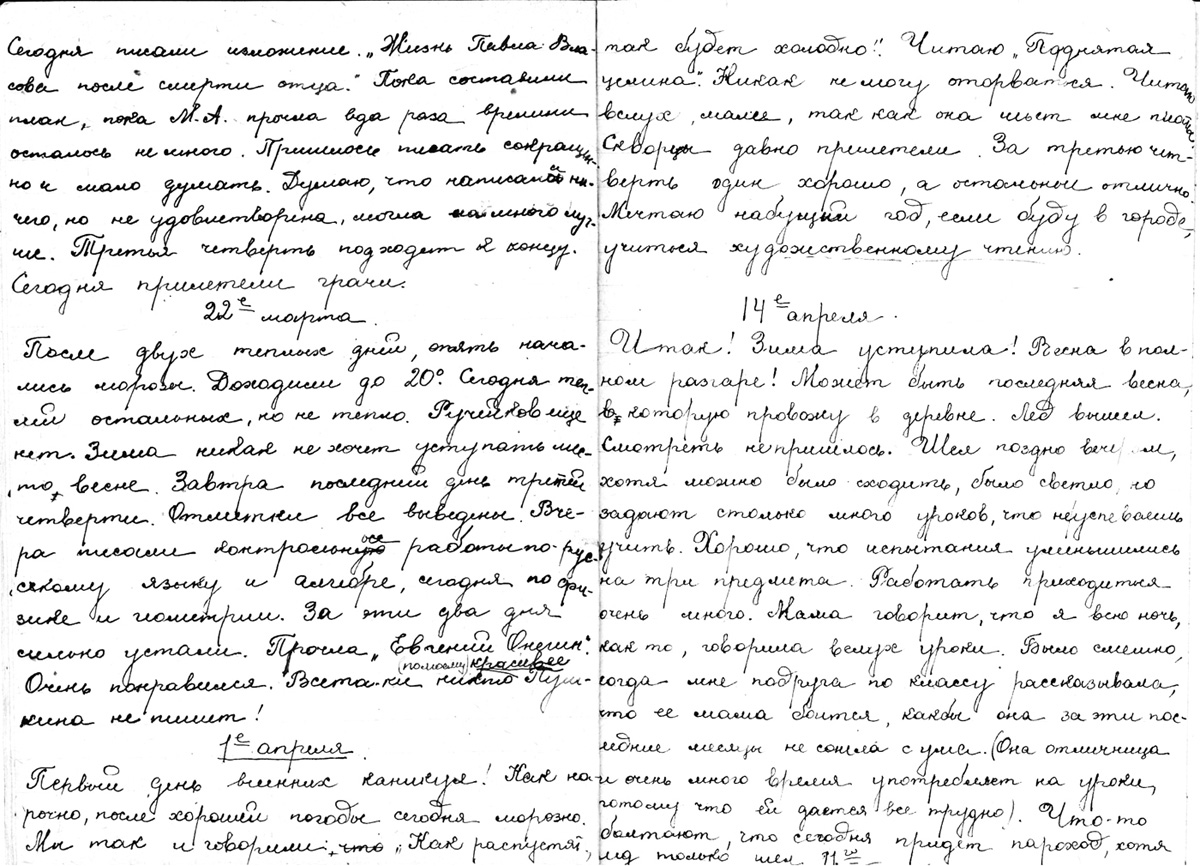 Сегодня писали изложение. „Жизнь Павла Вла-
сова после смерти отца." Пока составили
план, пока М.А. прочла два раза времени
осталось немного. Пришлось писать сокращен-
но и мало думать. Думаю, что написала ни-
чего, но не удовлетворена, могла намного луч-
ше. Третья четверть подходит к концу.
Сегодня прилетели грачи.
22е марта.
После двух теплых дней, опять нача-
лись морозы. Доходили до 20°. Сегодня теп-
лей остальных, но не тепло. Ручейков еще
нет. Зима никак не хочет уступать ме-
сто весне. Завтра последний день третей
четверти. Отметки все выведены. Вче-
ра писали контрольные работы по рус-
скому языку и алгебре, сегодня по фи-
зике и геометрии. За эти два дня
сильно устали. Прочла „Евгений Онегин".
Очень понравился. Всета-ки никто (помоему) красивее Пуш-
кина не пишет!
1е апреля.
Первый день весенних каникул! Как на-
рочно, после хорошей погоды сегодня морозно.
Мы так и говорили „Как распустят,
так будет холодно!" Читаю „Поднятая
целина". Никак не могу оторваться. Читаю
вслух, маме, так как она шьет мне платье.
Скворцы давно прилетели. За третью чет-
верть один хорошо, а остальные отлично.
Мечтаю на будущий год, если буду в городе,
учиться художественному чтению.
14е апреля.
Итак! Зима уступила! Весна в пол-
ном разгаре! Может быть последняя весна,
которую провожу в деревне. Лед вышел.
Смотреть не пришлось. Шел поздно вечером,
хотя можно было сходить, было светло, но
задают столько много уроков, что неуспеваешь
учить. Хорошо, что испытания уменьшились
на три предмета. Работать приходиться
очень много. Мама говорит, что я всю ночь,
как то, говорила вслух уроки. Было смешно,
когда мне подруга по классу рассказывала,
что ее мама боится, какбы она за эти пос-
ледние месяцы не сошла с ума. (Она отличница
и очень много время употребляет на уроки,
потому что ей дается все трудно). Что-то
болтают, что сегодня придет пароход, хотя
лед только шел 11го